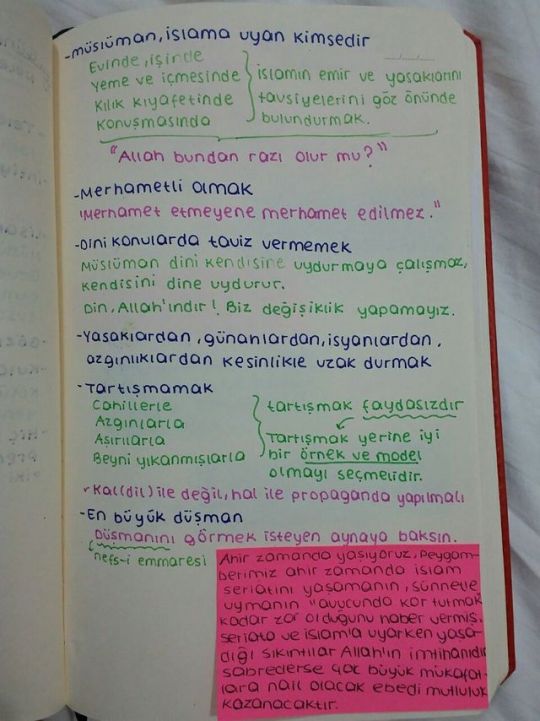 -müslüman, islama uyan kimsedir
Evinde, işinde
Yeme ve içmesinde
Kılık kıyafetinde
Konuşmasında
islamın emir ve yasaklarını
tavsiyelerini göz önünde
bulundurmak.
"Allah bundan razı olur mu?"
-Merhametli olmak
"Merhamet etmeyene merhamet edilmez."
-Dini konularda taviz vermemek
Müslüman dini kendisine uydurmaya çalışmaz,
kendisini dine uydurur.
Din, Allah'ındır! Biz değişiklik yapamayız.
-Yasaklardan, günahlardan, isyanlardan,
azgınlıklardan kesinlikle uzak durmak
-Tartışmamak
Cahillerle
Azgınlarla
Aşırılarla
Beyni yıkanmışlarla
tartışmak faydasızdır
Tartışmak yerine iyi
bir örnek ve model
olmayı seçmelidir.
Kal(dil) ile değil, hal ile propaganda yapılmalı
-En büyük düşman
Düşmanını görmek isteyen aynaya baksın.
nefs-i emmaresi
Ahir zamanda yaşıyoruz, Peygam-
berimiz ahir zamanda islam
şeriatını yaşamanın, sünnete
uymanın "avucunda kor tutmak
kadar zor olduğunu haber vermiş.
Şeriata ve islam'a uyarken yaşa-
dığı sıkıntılar Allah'ın imtihanıdır
sabrederse çok büyük mükafat-
lara nail olacak ebedi mutluluk
kazanacaktır.